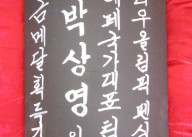 리우올림픽펜싱
에페국가대표
박상영
금메달획득기